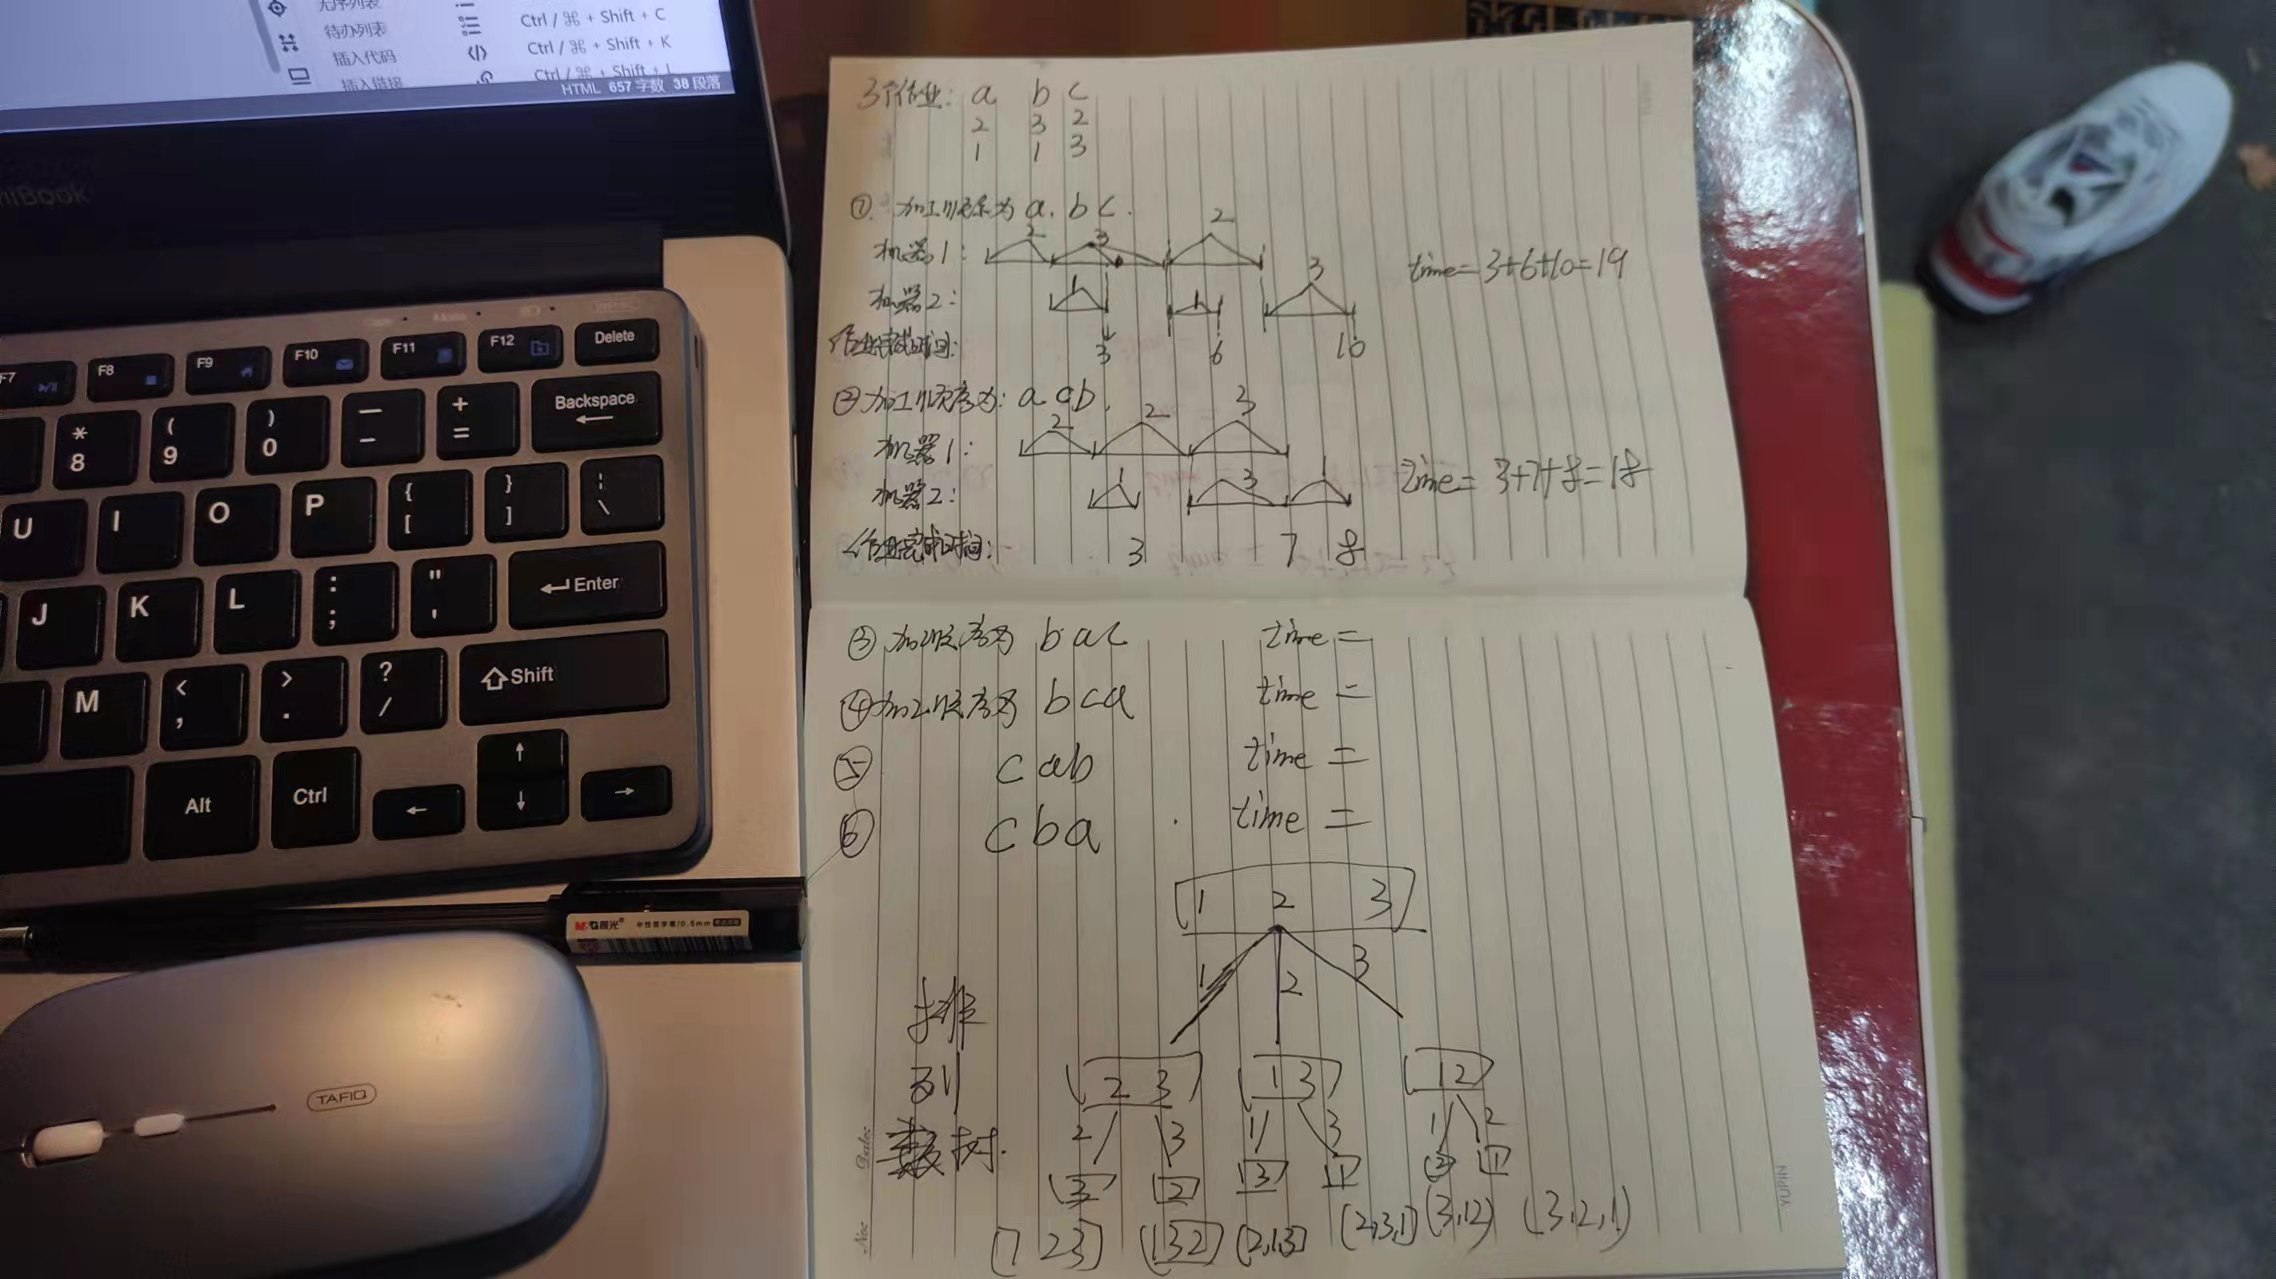 无序列表 Ctrl / ⌘ + Shift + C
待办列表 Ctrl / ⌘ + Shift + K
插入代码 </> Ctrl / ⌘ + Shift + L
插入链接
HTML 657 字数 38 段落
F7 F8 F9 F10 F11 F12 Delete
* 8 ( 9 ) 0 — - + = Backspace
U I O P { [ } ] | \
J K L : ; " ' Enter
M < , > . ? / Shift
Alt Ctrl
M&G晨光 中性签字笔/0.5mm
TAFIQ
3个作业: a b c
2 3 2
1 1 3
① 加工顺序为 a. b c.
机器1: 2 3 2
机器2: 1 1 3
time=3+6+10=19
作业完成时间: 3 6 10
② 加工顺序为: a cb.
机器1: 2 2 3
机器2: 1 3 1
time= 3+7+8=18
作业完成时间: 3 7 8
③ 加工顺序为 bac time =
④ 加工顺序为 bca time =
⑤ cab time =
⑥ cba time =
1 2 3
1 2 3
排
列
树.
2 3 1 3 1 2
2 3 1 3 1 2
3 2 3 1 2 1
(1 23) (132) (2,1,3) (2,3,1) (3,12) (3,2,1)
No: Date:
YUPIN